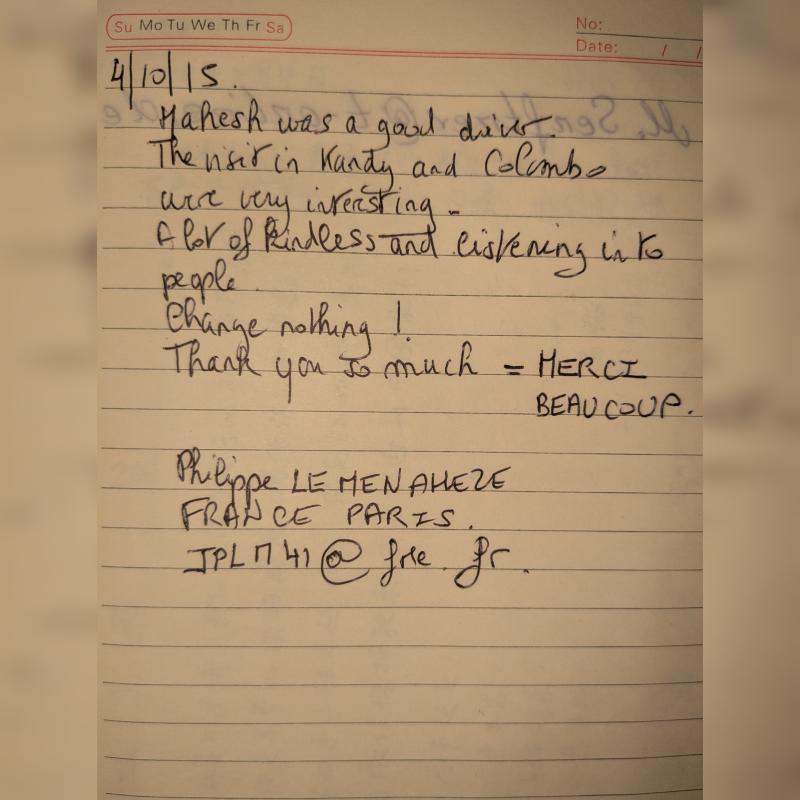 Su Mo Tu We Th Fr Sa
No:
Date: / /
4/10/15.
Mahesh was a good driver.
The visit in Kandy and Colombo
were very interesting.
A lot of kindless and listening into
people.
Change nothing!
Thank you so much = MERCI
BEAUCOUP.
Philippe LE MENAHEZE
FRANCE PARIS.
JPLM41@free.fr.